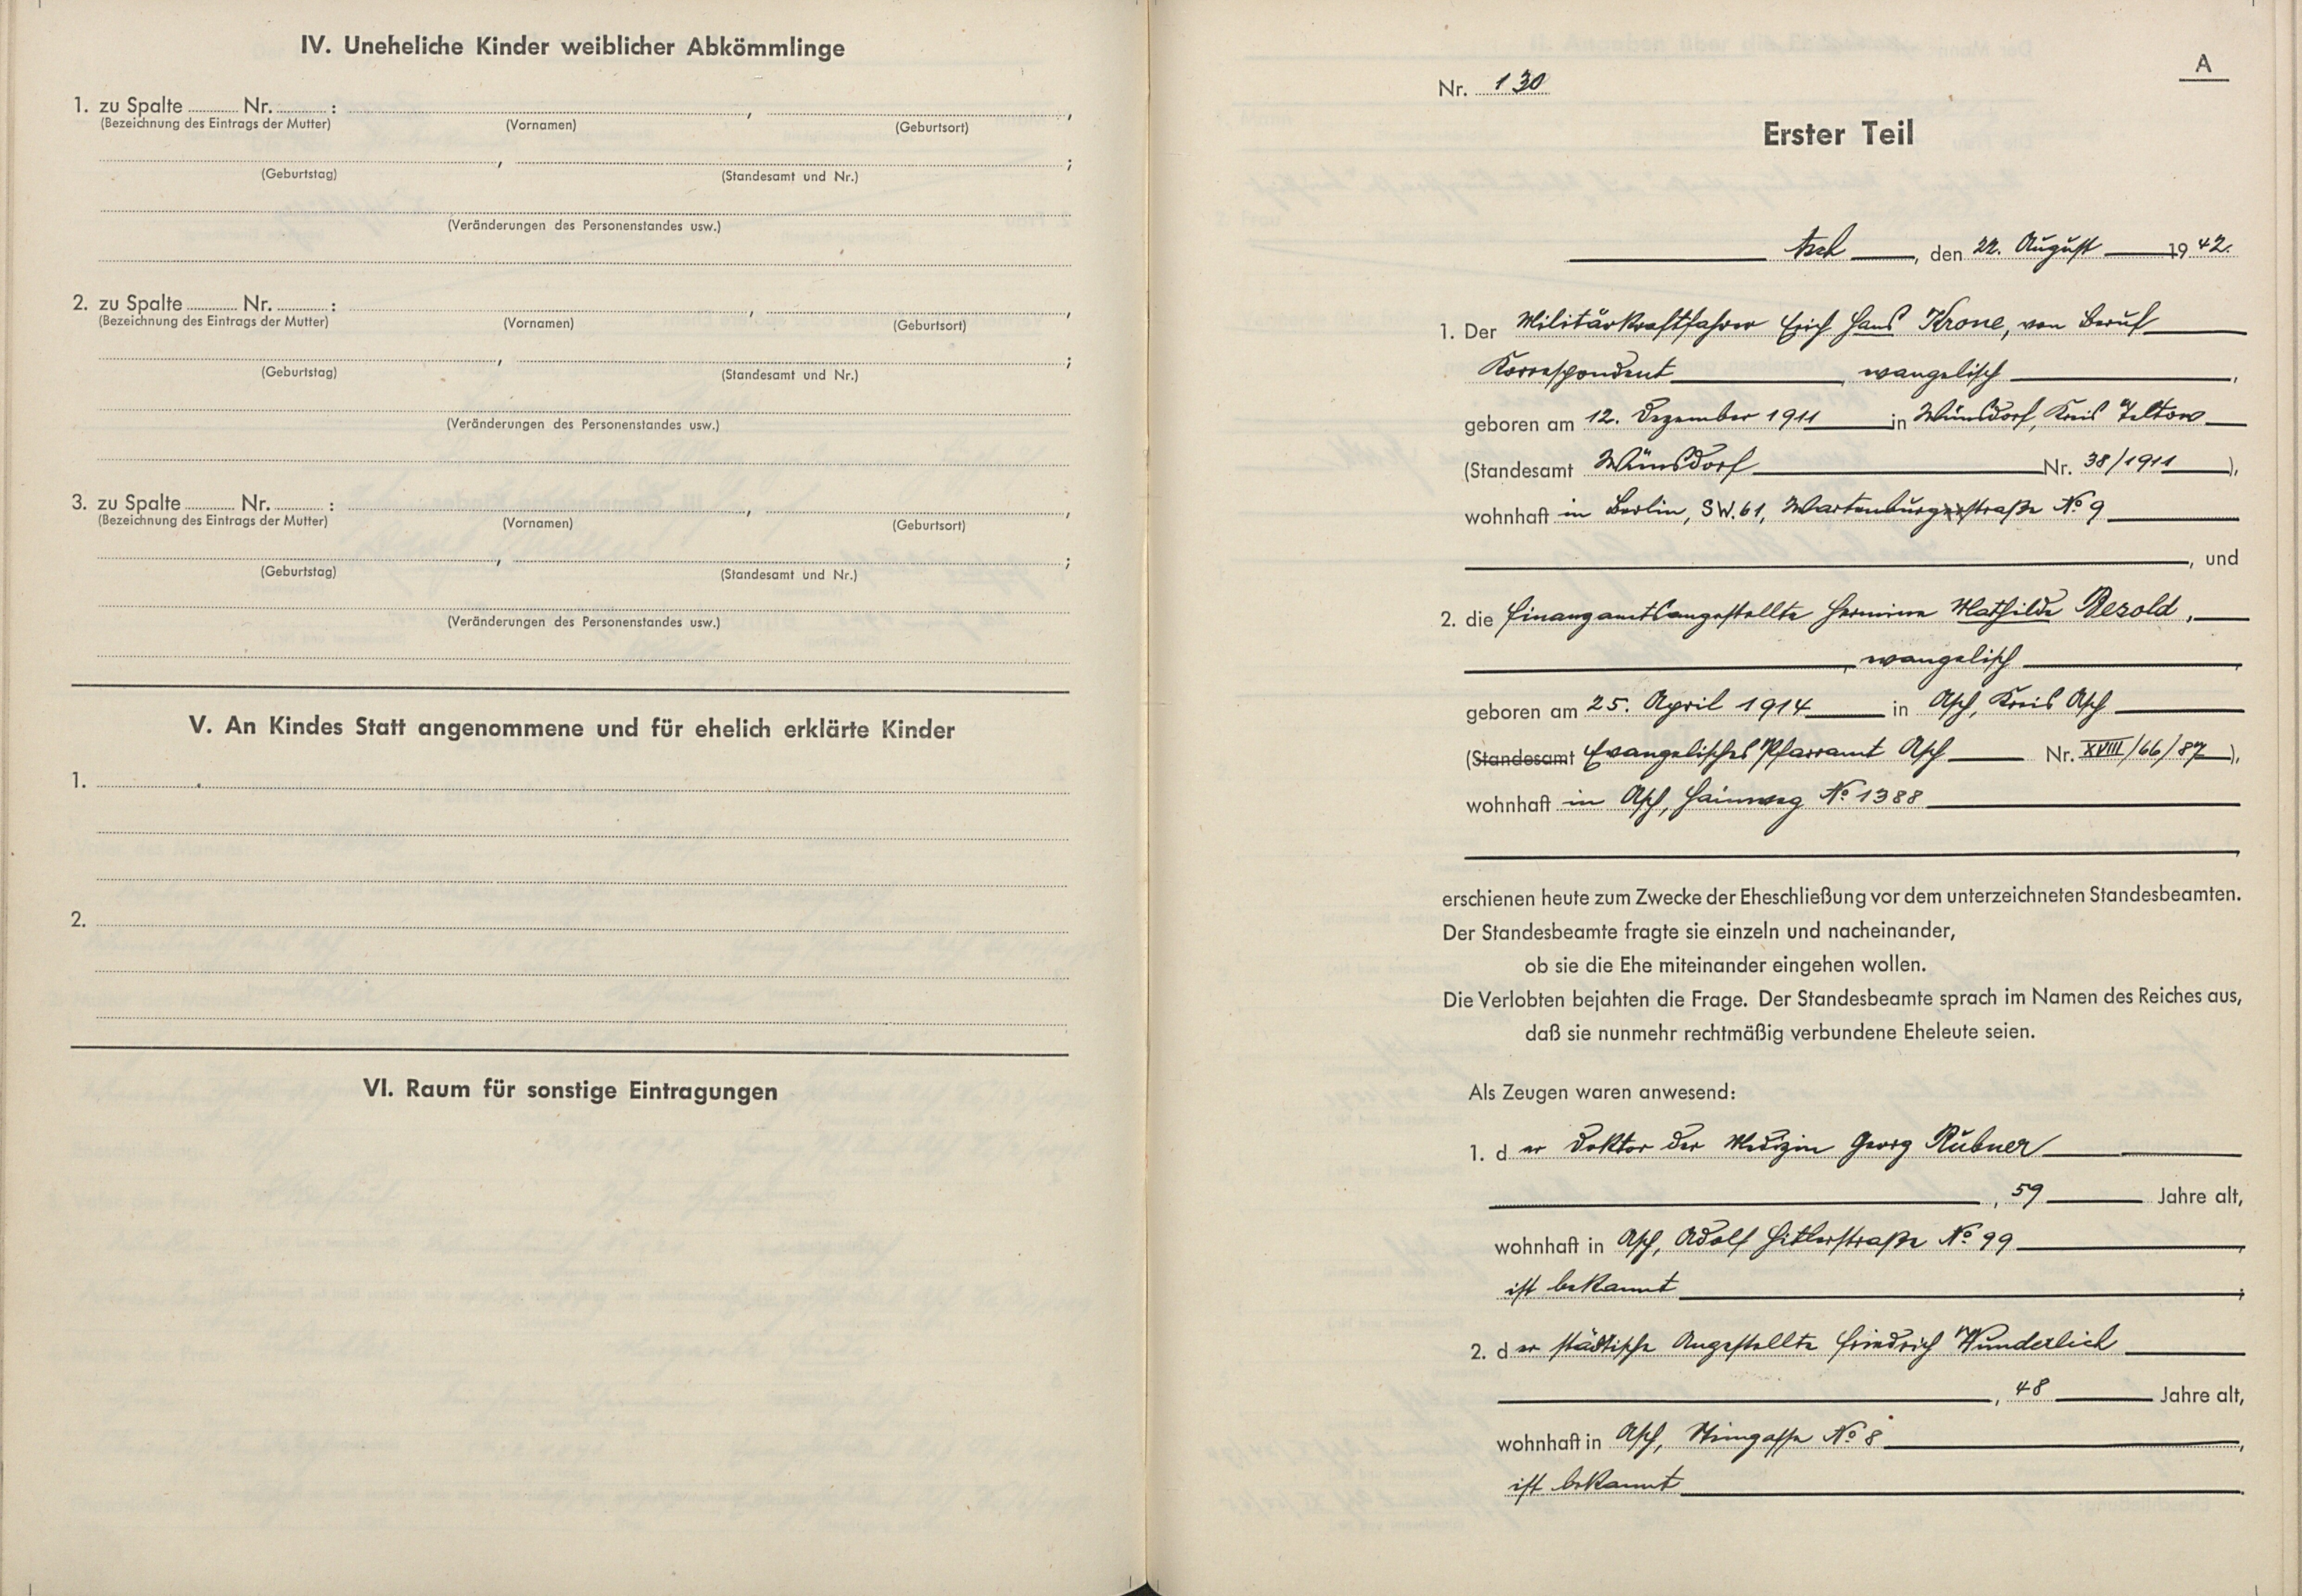 IV. Uneheliche Kinder weiblicher Abkömmlinge
1. zu Spalte ........ Nr. ........ : ........ , ........ ,
(Bezeichnung des Eintrags der Mutter) (Vornamen) (Geburtsort)
........ , ........ ;
(Geburtstag) (Standesamt und Nr.)
(Veränderungen des Personenstandes usw.)
2. zu Spalte ........ Nr. ........ : ........ , ........ ,
(Bezeichnung des Eintrags der Mutter) (Vornamen) (Geburtsort)
........ , ........ ;
(Geburtstag) (Standesamt und Nr.)
(Veränderungen des Personenstandes usw.)
3. zu Spalte ........ Nr. ........ : ........ , ........ ,
(Bezeichnung des Eintrags der Mutter) (Vornamen) (Geburtsort)
........ , ........ ;
(Geburtstag) (Standesamt und Nr.)
(Veränderungen des Personenstandes usw.)
V. An Kindes Statt angenommene und für ehelich erklärte Kinder
1.
2.
VI. Raum für sonstige Eintragungen
A
Nr. 130
Erster Teil
Asch, den 22. August 1942.
1. Der Militärkraftfahrer Erich Hans Krone, von Beruf
Korrespondent, evangelisch,
geboren am 12. Dezember 1911 in Wünsdorf, Kreis Teltow
(Standesamt Wünsdorf Nr. 38/1911),
wohnhaft in Berlin, SW. 61, Wartenburgstraße No 9
, und
2. die Finanzamtsangestellte Hermine Mathilde Bezold,
, evangelisch,
geboren am 25. April 1914 in Asch, Kreis Asch
(Standesamt Evangelisches Pfarramt Asch Nr. XVIII/66/87),
wohnhaft in Asch, Hainweg No 1388
erschienen heute zum Zwecke der Eheschließung vor dem unterzeichneten Standesbeamten.
Der Standesbeamte fragte sie einzeln und nacheinander,
ob sie die Ehe miteinander eingehen wollen.
Die Verlobten bejahten die Frage. Der Standesbeamte sprach im Namen des Reiches aus,
daß sie nunmehr rechtmäßig verbundene Eheleute seien.
Als Zeugen waren anwesend:
1. der Doktor der Medizin Georg Rubner
, 59 Jahre alt,
wohnhaft in Asch, Adolf Hitlerstraße No 99,
ist bekannt;
2. der städtische Angestellte Friedrich Wunderlich
, 48 Jahre alt,
wohnhaft in Asch, No 8,
ist bekannt.